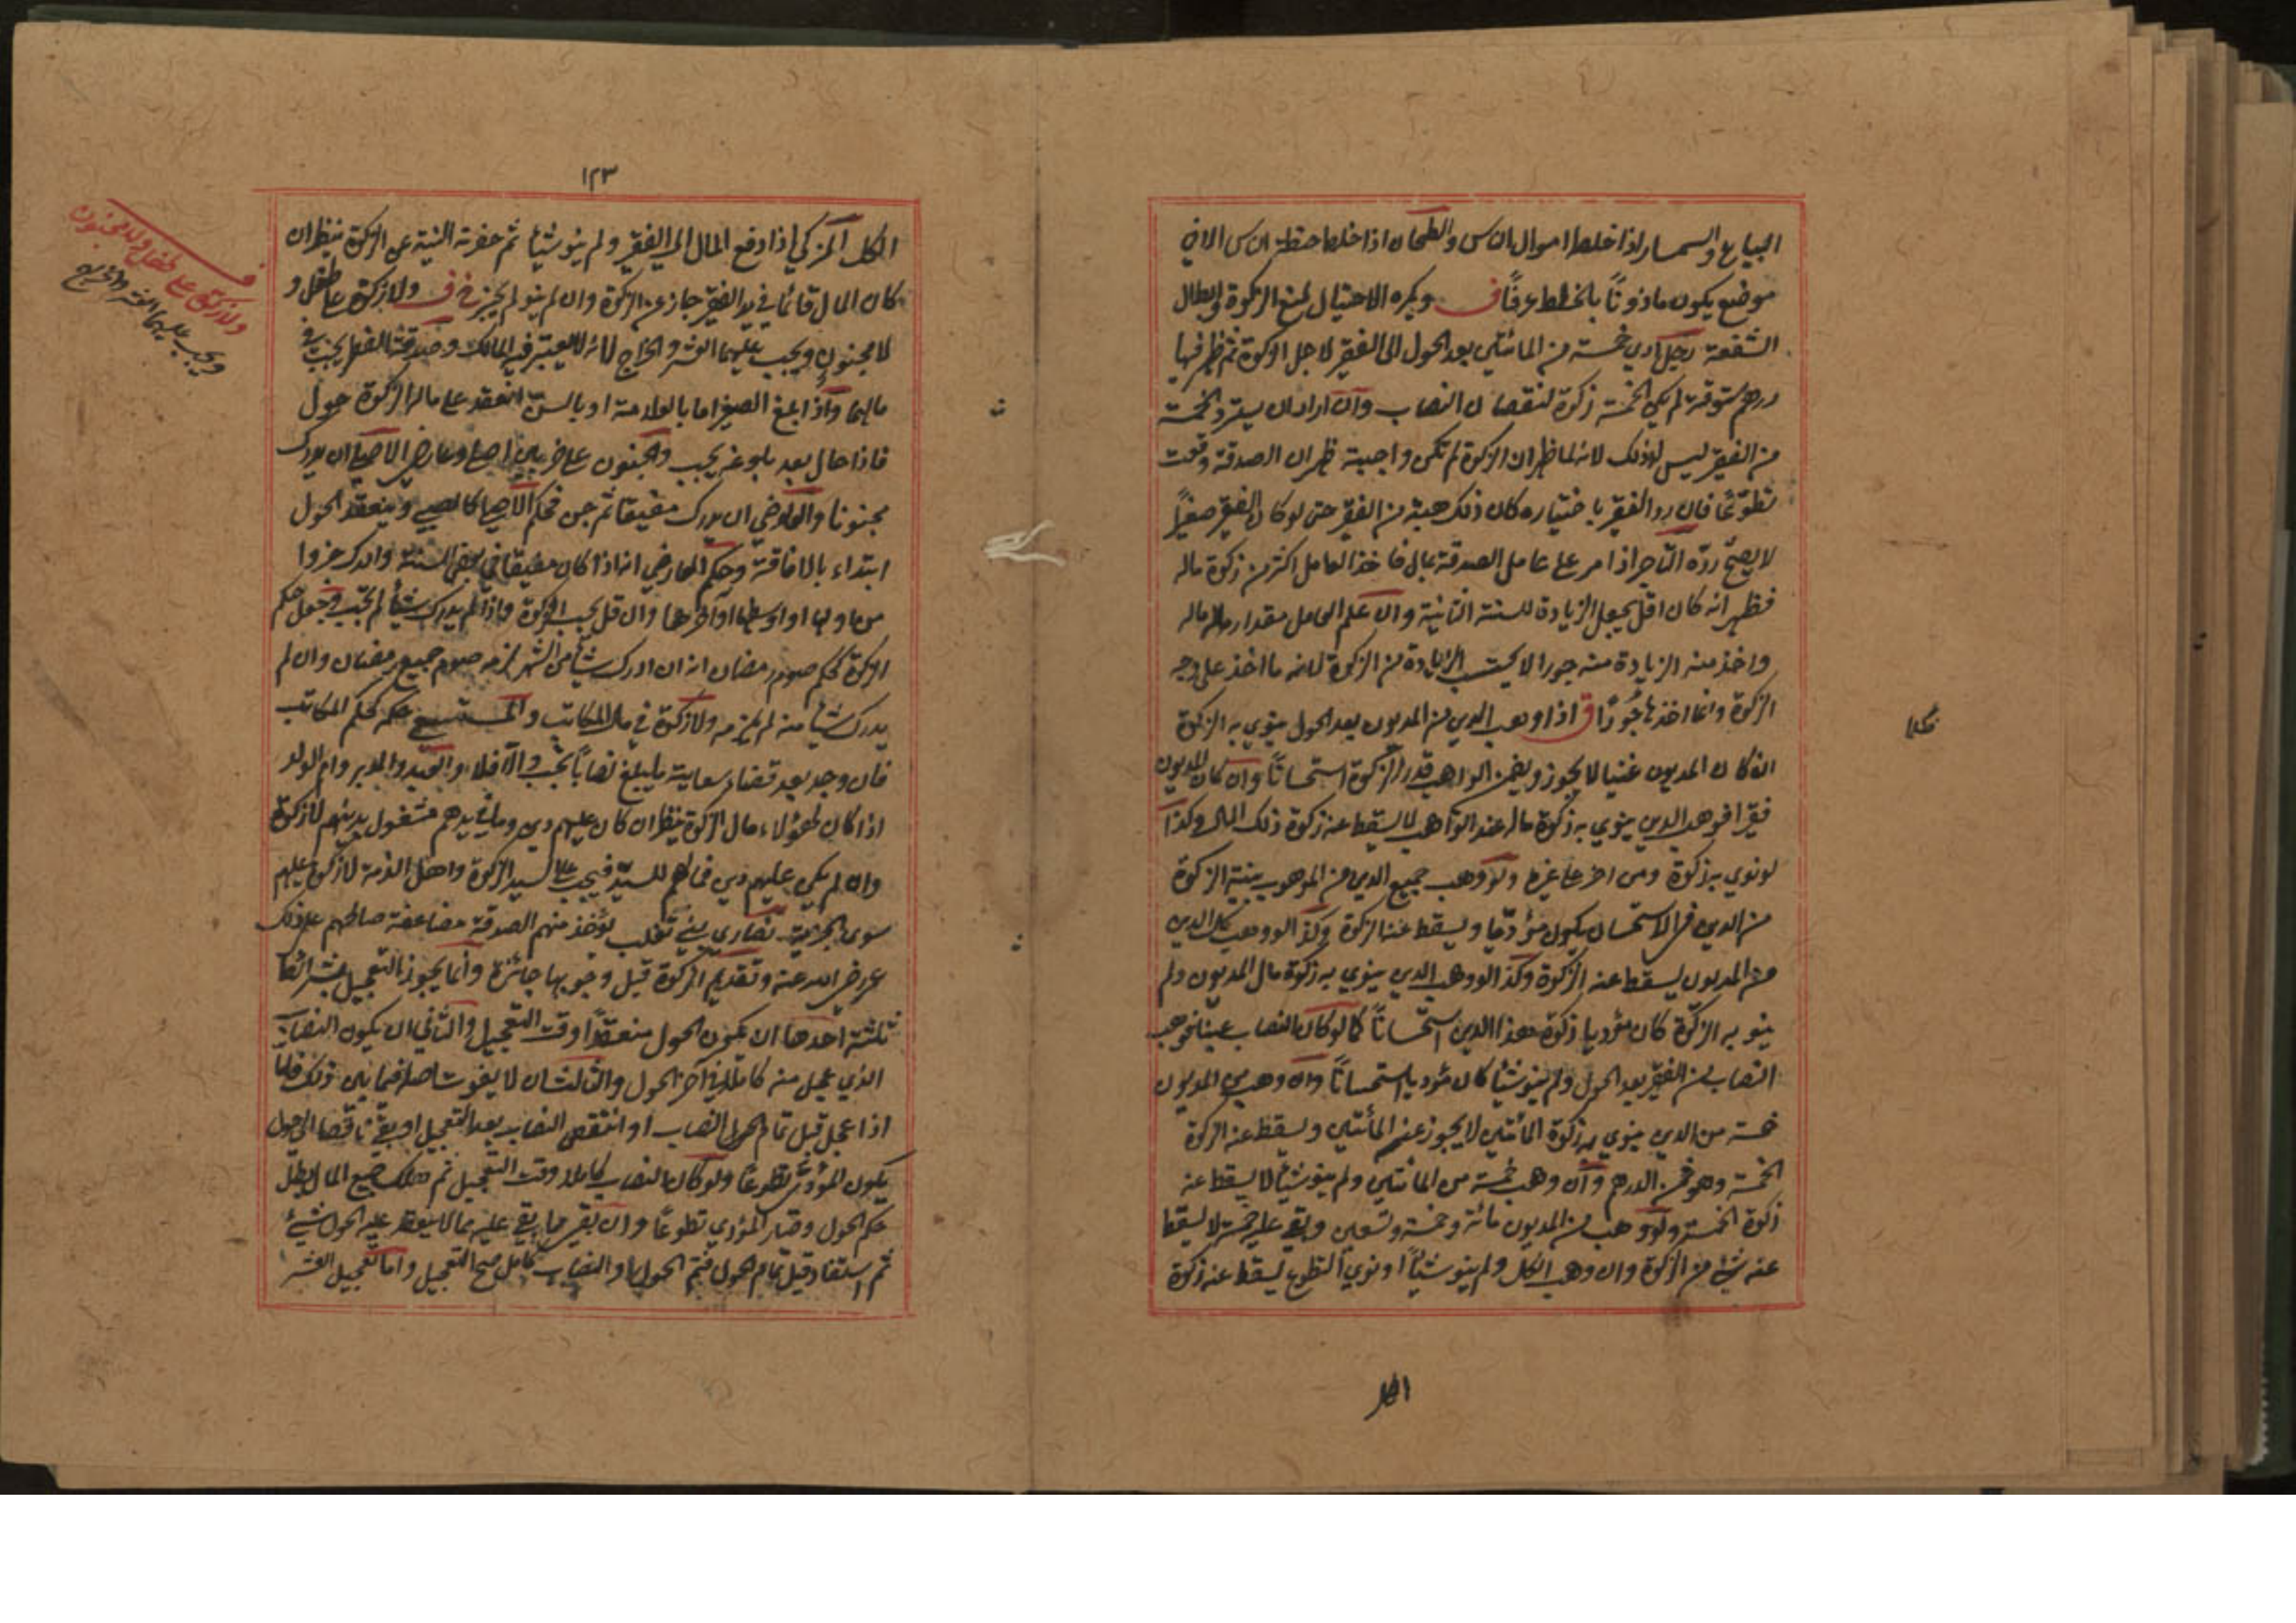 البياع والسمسار اذا خلط اموال الناس والطحان اذا خلط حنطة الناس الا في
موضع يكون ماذونًا بالخلط عرفًا ف ويكره الاحتيال لمنع الزكوة وابطال
الشفعة رجل ادي خمسة من المائتين بعد الحول الى الفقير لاجل الزكوة ثم ظهر فيها
درهم ستوقة لم يكن الخمسة زكوة لنقصان النصاب وان اراد ان يسترد الخمسة
من الفقير ليس له ذلك لانه لما ظهر ان الزكوة لم تكن واجبة ظهر ان الصدقة وقعت
تطوعًا فان رد الفقير باختياره كان ذلك هبة من الفقير حتى لو كان الفقير صغيرًا
لا يصح رده التاجر اذا مر على عامل الصدقة بمال فاخذ العامل اكثر من زكوة ماله
فظهر انه كان اقل يجعل الزيادة للسنة الثانية وان علم العامل مقدار ماله
واخذ منه الزيادة منه جورا لا يحتسب الزيادة من الزكوة لانه ما اخذ على وجه
الزكوة وانما اخذها جورًا ق اذا وهب الدين من المديون بعد الحول ينوي به الزكوة
ان كان المديون غنيا لا يجوز ويضمن الواهب قدر الزكوة استحسانًا وان كان المديون
فقيرا فوهب الدين ينوي به زكوة ماله عند الواهب لا يسقط عنه زكوة ذلك المال وكذا
لو نوي به زكوة دين اخر على غيره ولو وهب جميع الدين من الموهوب بنية الزكوة
من الدين في الاستحسان يكون مؤديًا ويسقط عنه الزكوة وكذا لو وهب كل الدين
من المديون يسقط عنه الزكوة وكذا لو وهب الدين ينوي به زكوة مال المديون ولم
ينو به الزكوة كان مؤديا زكوة هذا الدين استحسانًا كما لو كان النصاب عينا فوهب
النصاب من الفقير بعد الحول ولم ينو شيئا كان مؤديا استحسانًا وان وهب من المديون
خمسة من الدين ينوي به زكوة المائتين لا يجوز عن المائتين ويسقط عنه زكوة
الخمسة وهو ثمن الدرهم وان وهب خمسة من المائتين ولم ينو شيئًا لا يسقط عنه
زكوة الخمسة ولو وهب من المديون مائة وخمسة وتسعين وبقي عليه خمسة لا يسقط
عنه شئ من الزكوة وان وهب الكل ولم ينو شيئًا او نوي التطوع يسقط عنه زكوة
الكل
١٢٣
الكل المزكي اذا دفع المال الى الفقير ولم ينو شيئا ثم حضرته النية عن الزكوة ينظر ان
كان المال قائما في يد الفقير جاز عن الزكوة وان لم ينو لم يجز ف ولا زكوة على طفل و
لا مجنون ويجب عليهما العشر والخراج لانه لا يعتبر فيه المالك وصدقة الفطر يجب في
مالهما واذا بلغ الصغير اما بالعلامة او بالسن انعقد على ماله الزكوة حول
فاذا حال بعد بلوغه يجب والجنون على ضربين اصلي وعارضي الاصلي ان يدرك
مجنونا والعارضي ان يدرك مفيقا ثم جن فحكم الاصلي كالصبي وينعقد الحول
ابتداء بالافاقة وحكم العارضي انه اذا كان مفيقا في بعض السنة وادرك جزوا
من اولها او اوسطها او اخرها وان قل يجب الزكوة واذا لم يدرك شيئا لم تجب وجعل حكم
الزكوة كحكم صوم رمضان انه ان ادرك شيئا من الشهر لزمه صوم جميع رمضان وان لم
يدرك شيئا منه لم يلزمه ولا زكوة في مال المكاتب والمستسعي حكمه كحكم المكاتب
فان وجد بعد قضاء سعايته ما يبلغ نصابًا يجب والا فلا والعبد والمدبر وام الولد
اذا كان لهؤلاء مال الزكوة ينظر ان كان عليهم دين وما في يدهم مشغول بدينهم لا زكوة
وان لم يكن عليهم دين فمالهم للسيد فيجب على السيد الزكوة واهل الذمة لا زكوة عليهم
سوى الجزية نصارى بني تغلب يؤخذ منهم الصدقة مضاعفة صالحهم على ذلك
عمر رضي الله عنه وتقديم الزكوة قبل وجوبها جائزة وانما يجوز التعجيل بشرائط
ثلثة احدها ان يكون الحول منعقدًا وقت التعجيل والثاني ان يكون النصاب
الذي عجل منه كاملا في آخر الحول والثالث ان لا يفوت اصله فيما بين ذلك فاما
اذا عجل قبل تمام الحول النصاب او انتقص النصاب بعد التعجيل او بقي ناقصا الى الحول
يكون المؤدى تطوعًا ولو كان النصاب كاملا وقت التعجيل ثم هلك جميع المال بطل
حكم الحول وصار المؤدي تطوعًا وان بقي مما بقي عليه مما لا ينعقد عليه الحول شئ
ثم استفاد قبل تمام الحول فتم الحول والنصاب كامل صح التعجيل واما تعجيل العشر
ولا زكوة على طفل ولا مجنون
ويجب عليهما العشر والخراج